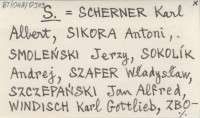 S. = SCHERNER Karl
Albert, SIKORA Antoni,.
SMOLEŃSKI Jerzy, SOKOLÍK
Andrej, SZAFER Władysław,
SZCZEPAŃSKI Jan Alfred,
WINDISCH Karl Gottlieb, ZBO-